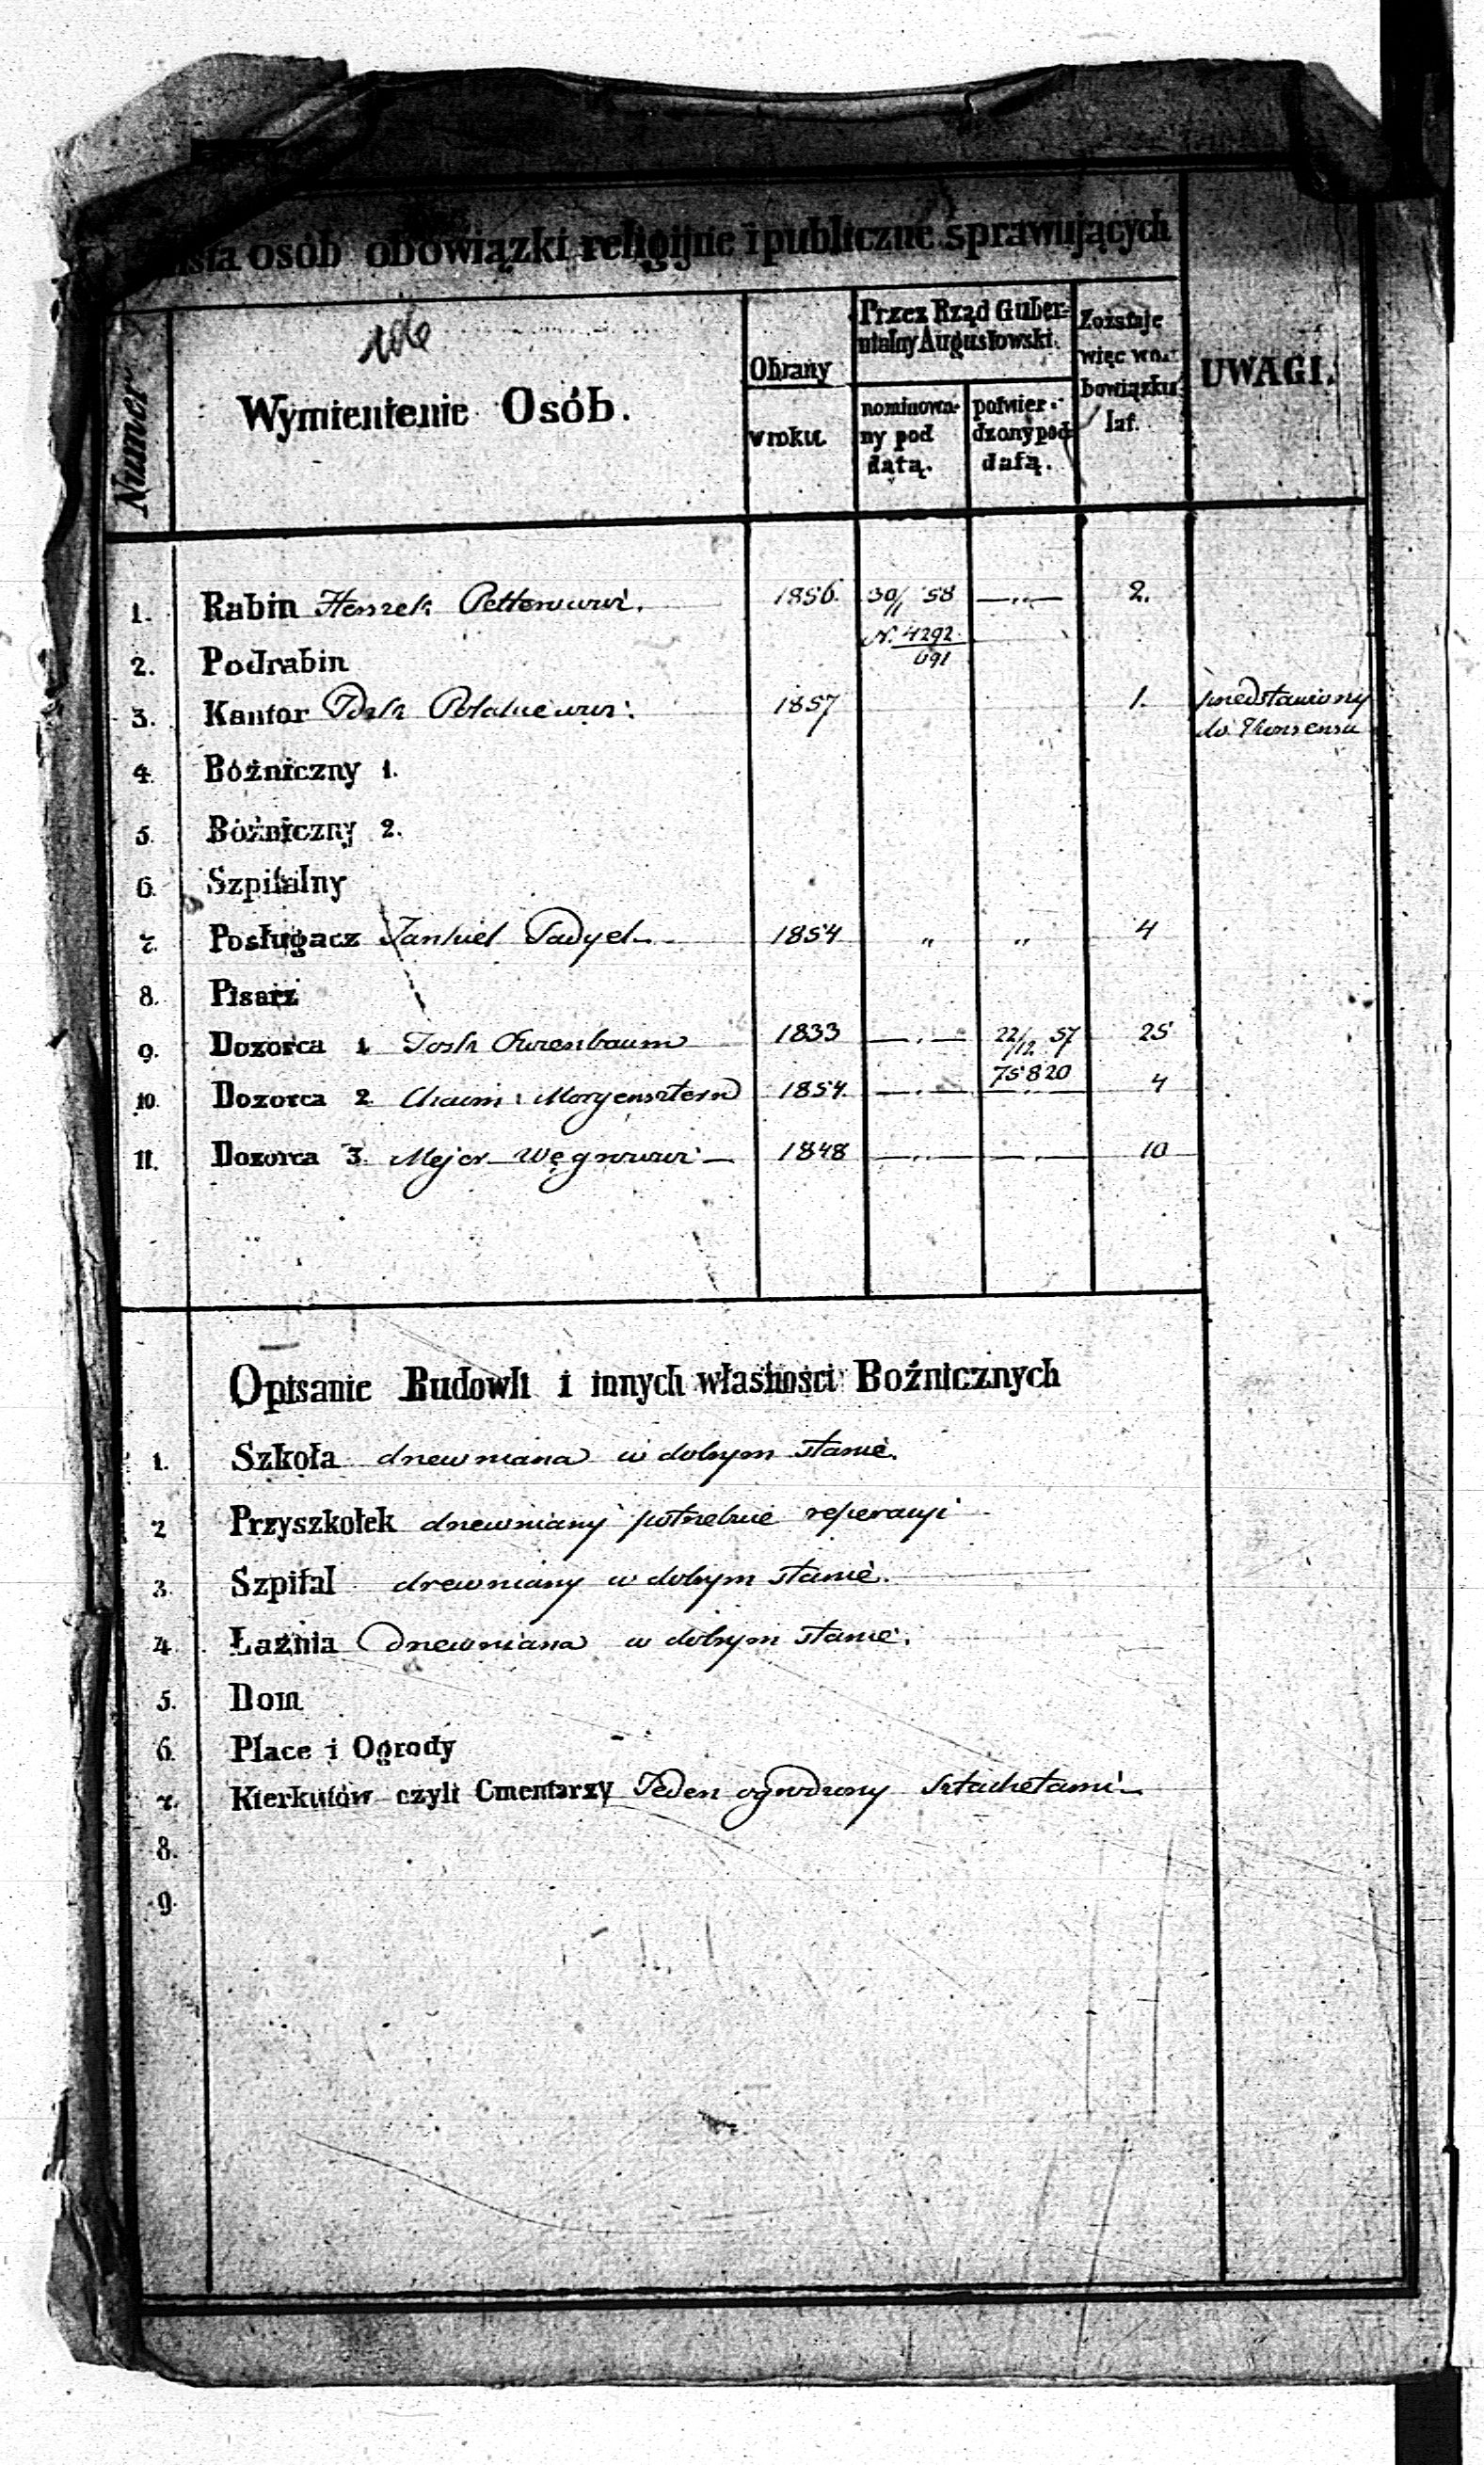 Lista osób obowiązki religijne i publiczne sprawujących
Numer
Wymienienie Osób.
Obrany
w roku.
Przez Rząd Guber-
nialny Augustowski.
nominowa-
ny pod
datą.
potwier-
dzony pod
datą.
Zostaje
więc w o-
bowiązku
lat.
UWAGI.
1. Rabin Herszek 1856. 30/11 58 —„— 2.
N. 4292
691
2. Podrabin
3. Kantor Josk 1857 1. przedstawiony
do Konsensu
4. Bóżniczny 1.
5. Bóżniczny 2.
6. Szpitalny
7. Posługacz Jankiel 1854 „ „ 4
8. Pisarz
9. Dozorca 1 Josk 1833 —„— 22/12 57 25
75820
10. Dozorca 2 Chaim Morgensztern 1854. —„— —„— 4
11. Dozorca 3. Mejer 1848 —„— —„— 10
Opisanie Budowli i innych własności Bożnicznych
1. Szkoła drewniana w dobrym stanie.
2 Przyszkołek drewniany potrzebuie reperacyi
3. Szpital drewniany w dobrym stanie.
4. Łaźnia drewniana w dobrym stanie.
5. Dom
6. Place i Ogrody
7. Kierkutów czyli Cmentarzy Jeden ogrodzony sztachetami
8.
9.